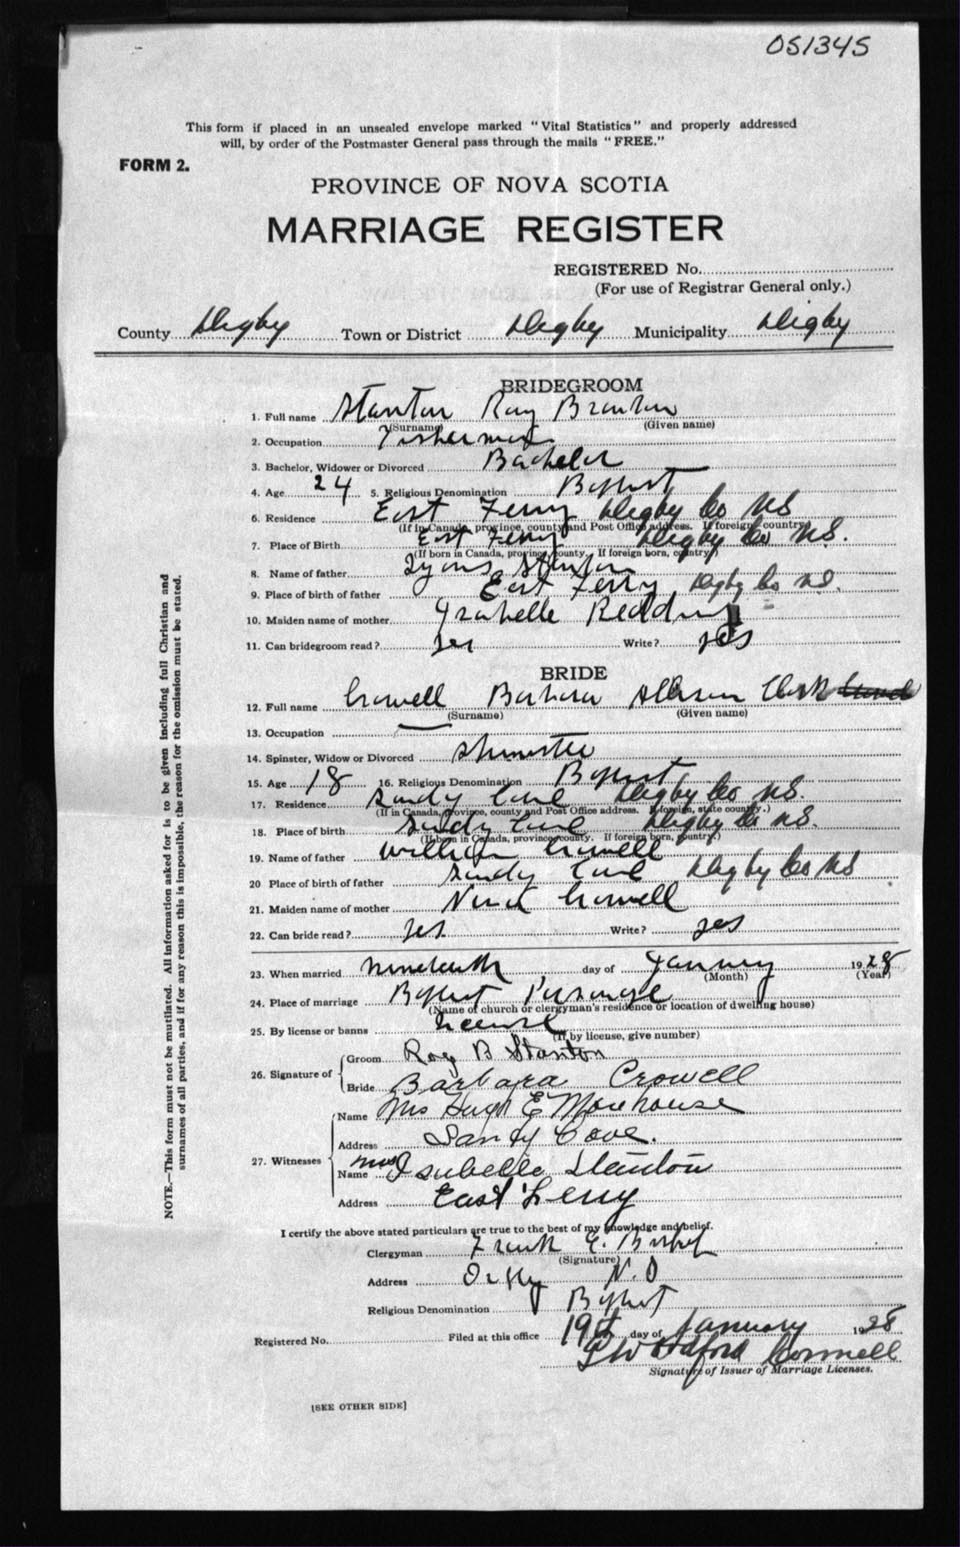 051345
This form if placed in an unsealed envelope marked "Vital Statistics" and properly addressed
will, by order of the Postmaster General pass through the mails "FREE."
FORM 2.
PROVINCE OF NOVA SCOTIA
MARRIAGE REGISTER
REGISTERED No.
(For use of Registrar General only.)
County Digby Town or District Digby Municipality Digby
BRIDEGROOM
1. Full name Stanton Roy
(Surname) (Given name)
2. Occupation Fisherman
3. Bachelor, Widower or Divorced Bachelor
4. Age 24 5. Religious Denomination Baptist
6. Residence East Ferry Digby Co NS
(If in Canada, province, county and Post Office address. If foreign, country)
7. Place of Birth East Ferry Digby Co N.S.
(If born in Canada, province, county. If foreign born, country)
8. Name of father Stanton
9. Place of birth of father East Ferry Digby Co N.S.
10. Maiden name of mother
11. Can bridegroom read? yes Write? yes
BRIDE
12. Full name Crowell Barbara
(Surname) (Given name)
13. Occupation —
14. Spinster, Widow or Divorced Spinster
15. Age 18 16. Religious Denomination Baptist
17. Residence Sandy Cove Digby Co N.S.
(If in Canada, province, county and Post Office address. If foreign, state country.)
18. Place of birth Sandy Cove Digby Co N.S.
(If born in Canada, province, county. If foreign born, country.)
19. Name of father William Crowell
20 Place of birth of father Sandy Cove Digby Co NS
21. Maiden name of mother Crowell
22. Can bride read? yes Write? yes
23. When married nineteenth day of January 1928
(Month) (Year)
24. Place of marriage Baptist Parsonage
(Name of church or clergyman's residence or location of dwelling house)
25. By license or banns license
(If by license, give number)
26. Signature of Groom Roy B Stanton
Bride Barbara Crowell
27. Witnesses Name Mrs Hugh E Morehouse
Address Sandy Cove.
Name Mrs Isabelle Stanton
Address East Ferry
I certify the above stated particulars are true to the best of my knowledge and belief.
Clergyman Frank E.
(Signature)
Address
Religious Denomination Baptist
Registered No. Filed at this office 19th day of January 1928
Signature of Issuer of Marriage Licenses.
[SEE OTHER SIDE]
NOTE.—This form must not be mutilated. All information asked for is to be given including full Christian and
surnames of all parties, and if for any reason this is impossible, the reason for the omission must be stated.